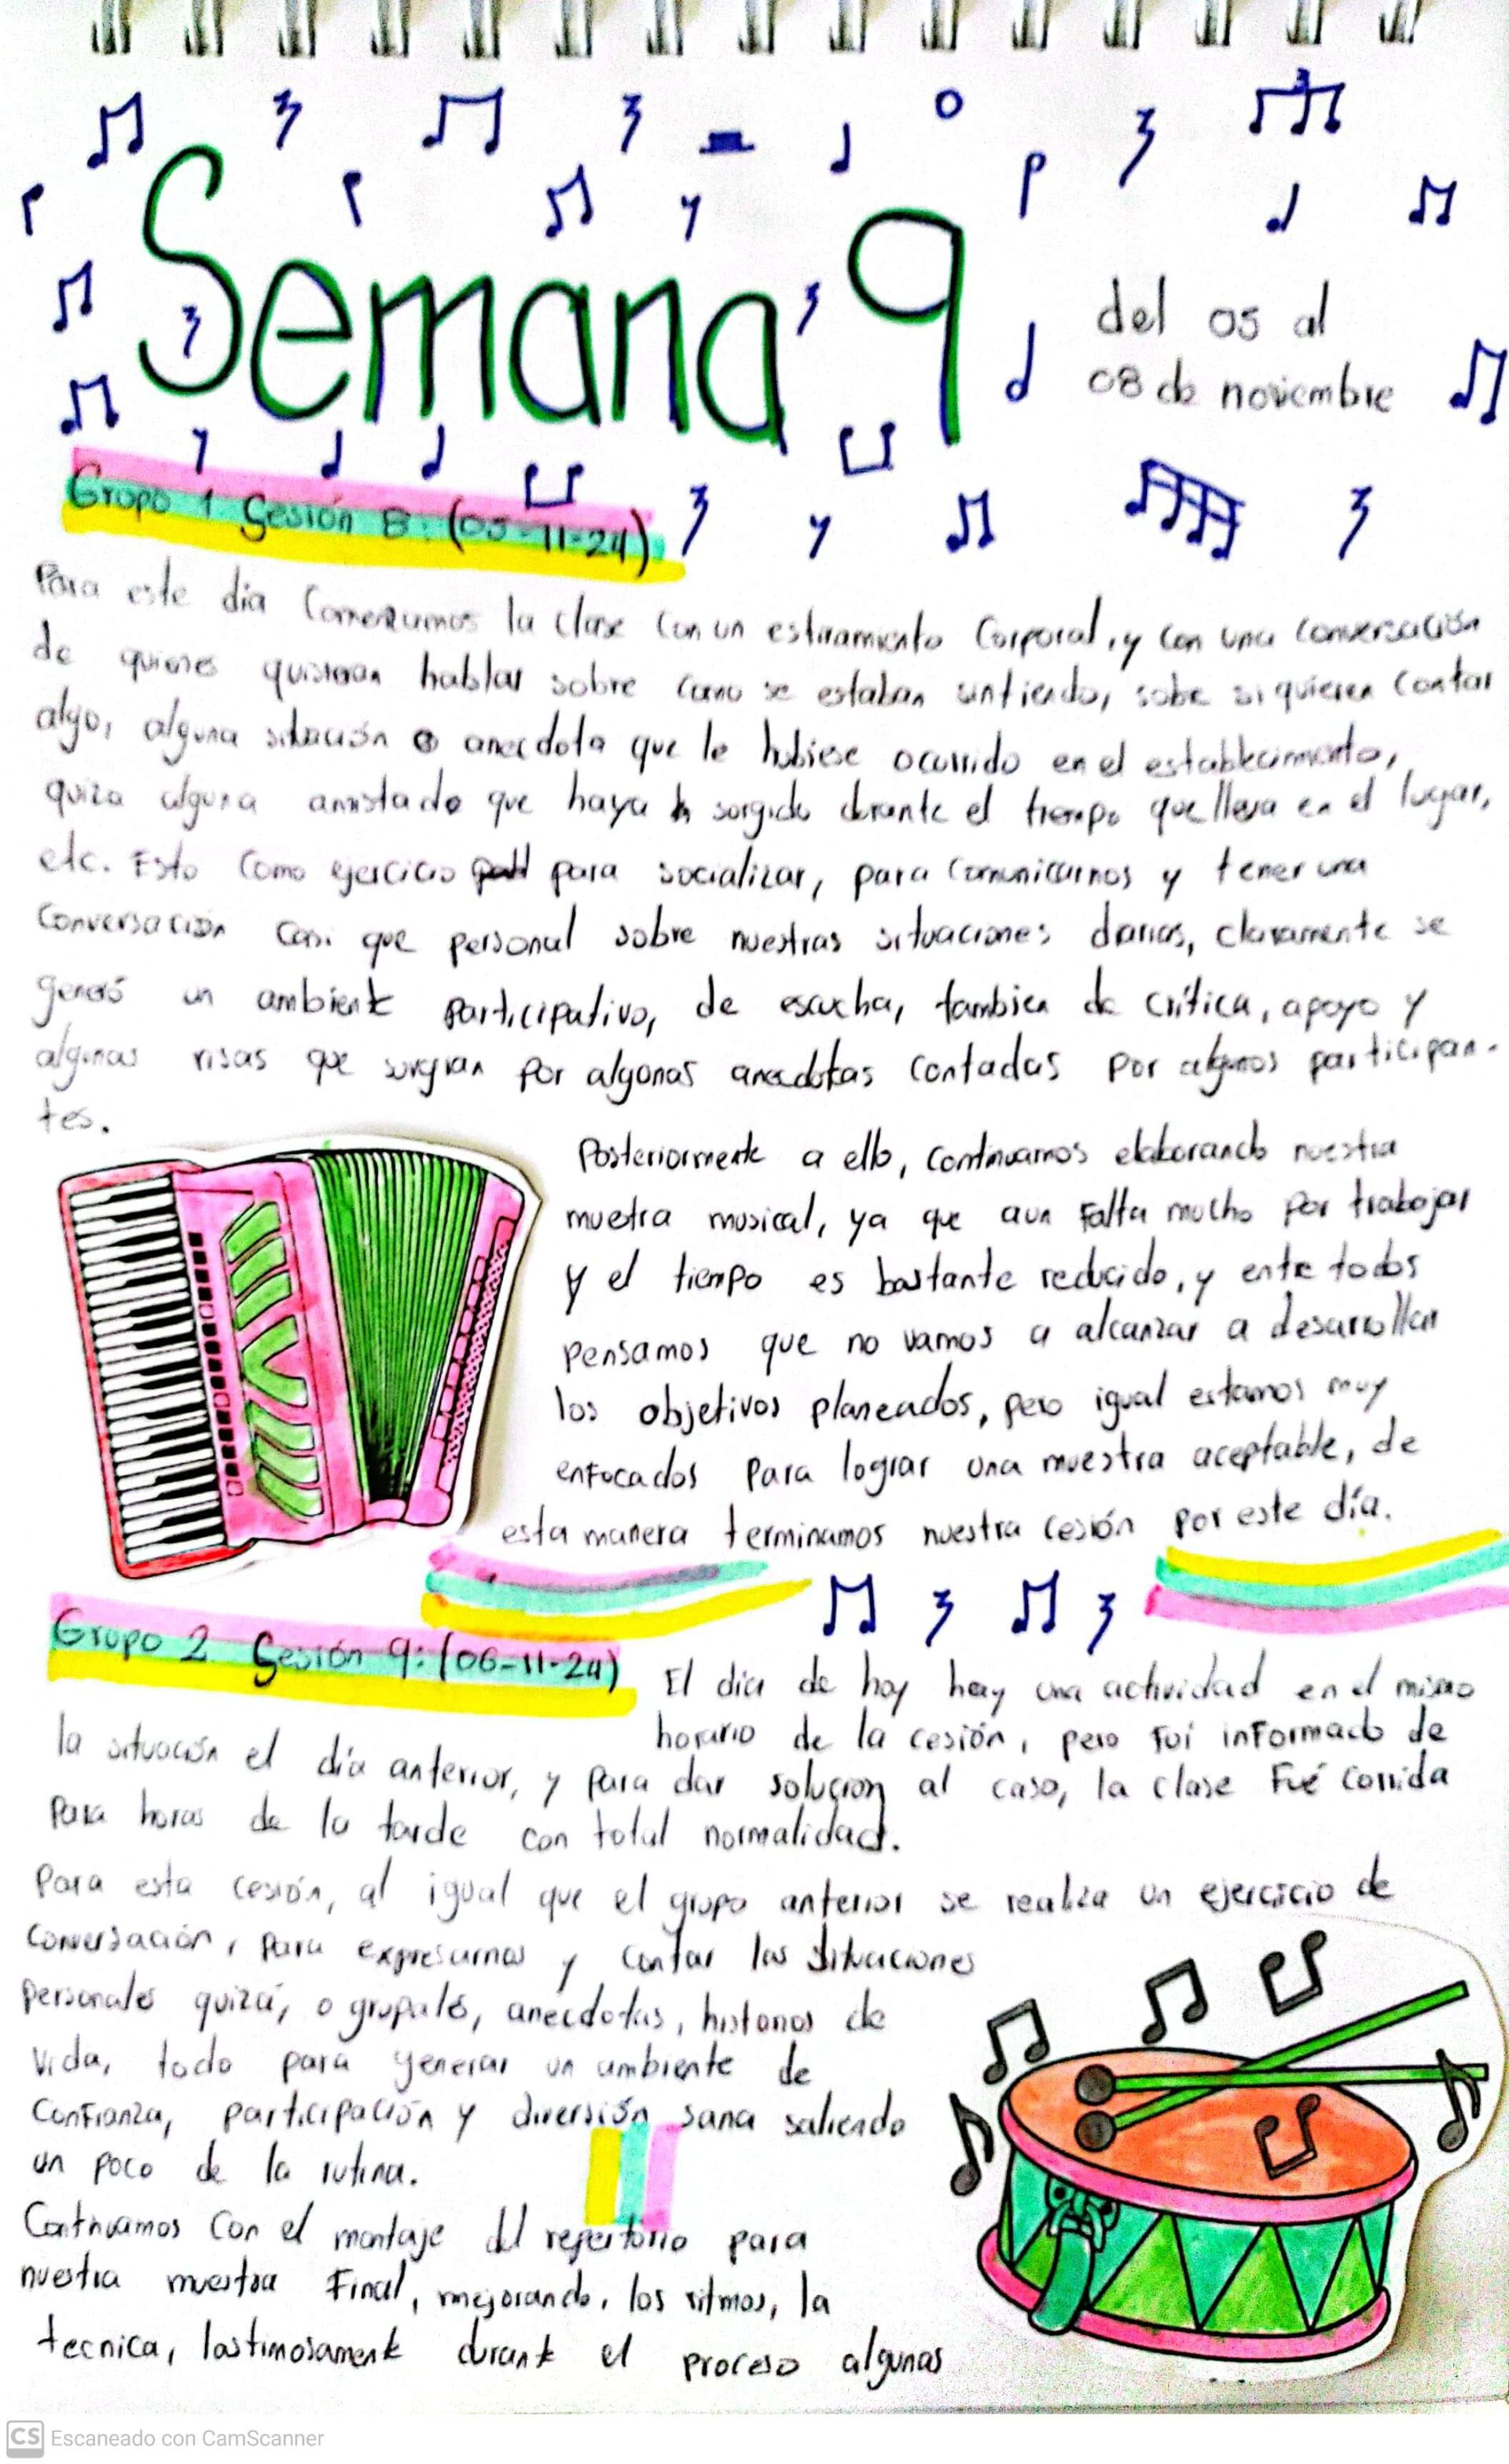 Semana 9
del 05 al
08 de noviembre
Grupo 1 Sesión 8: (05-11-24)
Para este dia Comenzamos la clase con un estiramiento Corporal, y con una conversación
de quienes quisieran hablar sobre como se estaban sintiendo, sobe si quieren contar
algo, alguna situación o anecdota que le hubiese ocurrido en el establecimiento,
quiza alguna amistado que haya sorgido durante el tiempo que lleva en el lugar,
etc. Esto como ejercicio para socializar, para comunicarnos y tener una
Conversación casi que personal sobre nuestras situaciones diarias, claramente se
generó un ambiente participativo, de escucha, tambien de crítica, apoyo y
algunas risas que surgian por algunas anecdotas contadas por algunos participan-
tes.
Posteriormente a ello, continuamos elaborando nuestra
muetra musical, ya que aun falta mucho por trabajar
y el tiempo es bastante reducido, y entre todos
pensamos que no vamos a alcanzar a desarrollar
los objetivos planeados, pero igual estamos muy
enfocados para lograr una muestra aceptable, de
esta manera terminamos nuestra cesión por este día.
Grupo 2 Sesión 9: (06-11-24)
El dia de hoy hay una actividad en el mismo
horario de la cesión, pero fui informado de
la situación el día anterior, y para dar solucion al caso, la clase fué corrida
para horas de la tarde con total normalidad.
Para esta cesión, al igual que el grupo anterior se realiza un ejercicio de
conversación, para expresarnos y contar las situaciones
personales quizá, o grupales, anecdotas, historias de
vida, todo para generar un ambiente de
confianza, participación y diversión sana saliendo
un poco de la rutina.
Continuamos con el montaje del repertorio para
nuestra muestra final, mejorando, los ritmos, la
tecnica, lastimosamente durante el proceso algunas
CS Escaneado con CamScanner